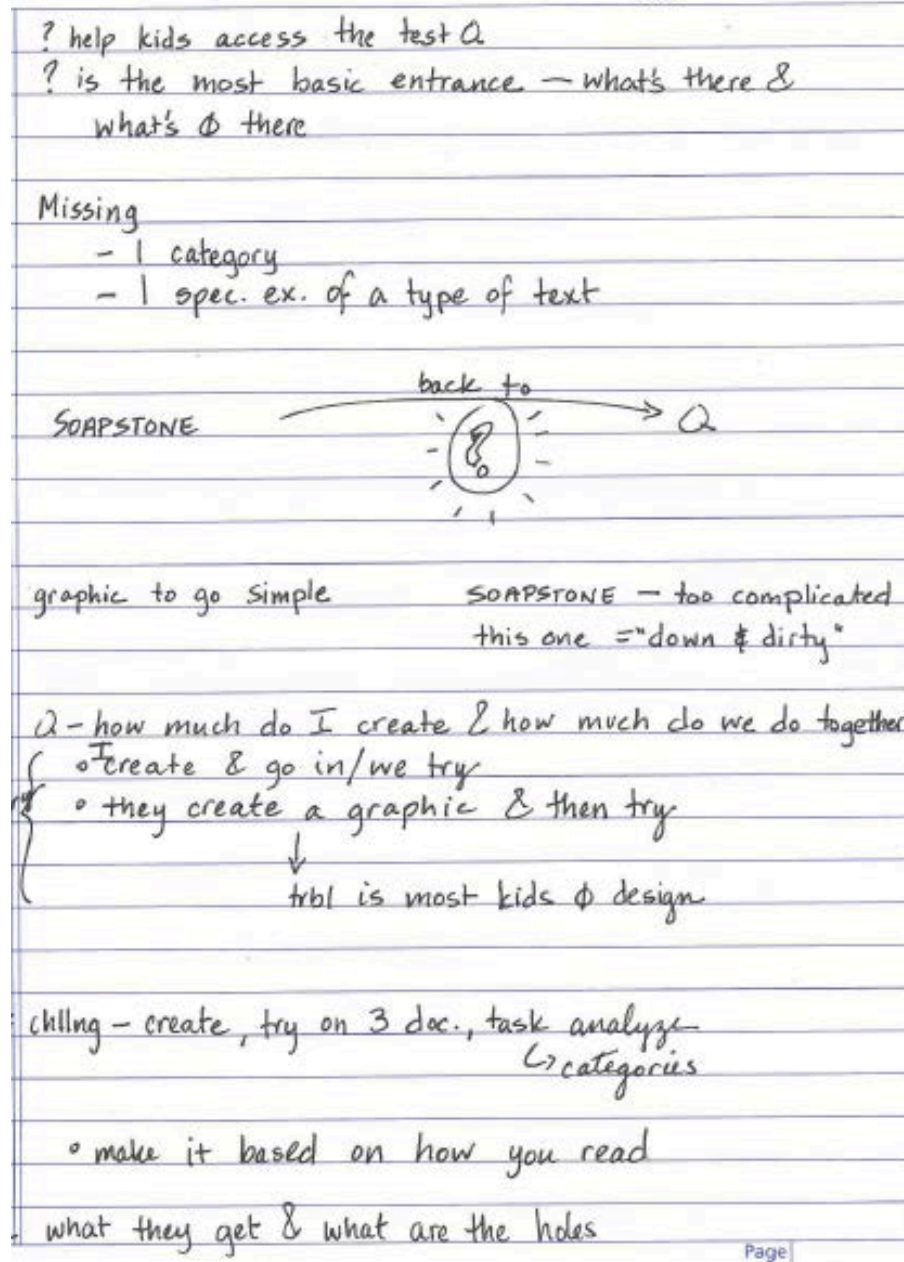 ? help kids access the test Q
? is the most basic entrance – what's there &
what's ϕ there
Missing
- 1 category
- 1 spec. ex. of a type of text
back to
SOAPSTONE → Q
?
graphic to go simple
SOAPSTONE – too complicated
this one = "down & dirty"
Q – how much do I create & how much do we do together
• I create & go in/we try
• they create a graphic & then try
↓
trbl is most kids ϕ design
chllng – create, try on 3 doc., task analyze
↳ categories
• make it based on how you read
what they get & what are the holes
Page